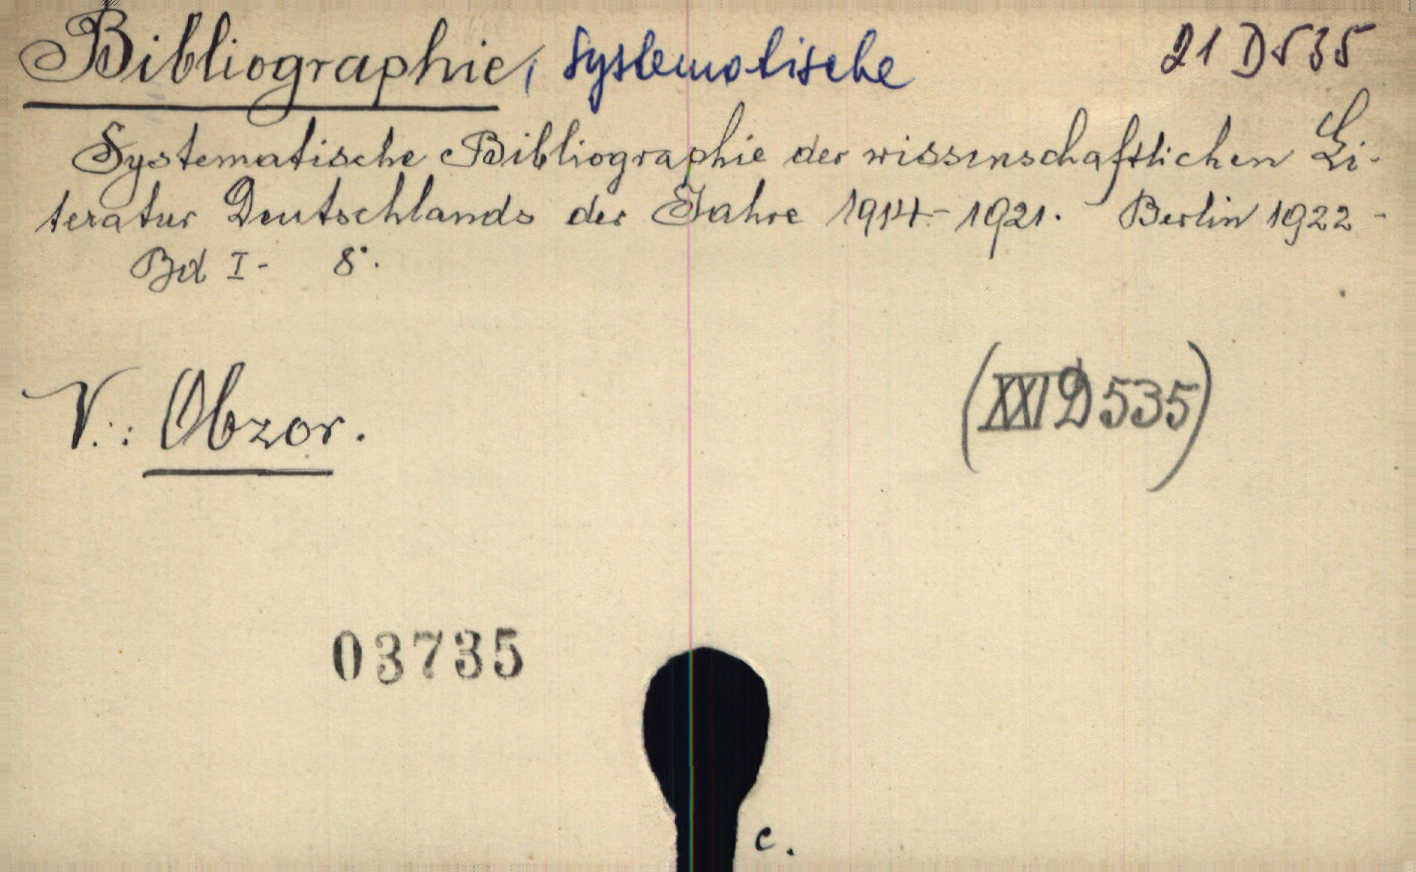 Bibliographie, systematische 21 D 535
Systematische Bibliographie der wissenschaftlichen Li-
teratur Deutschlands der Jahre 1914-1921. Berlin 1922-
Bd I- 8°.
V.: Obzor.
(XXI D 535)
03735
c.